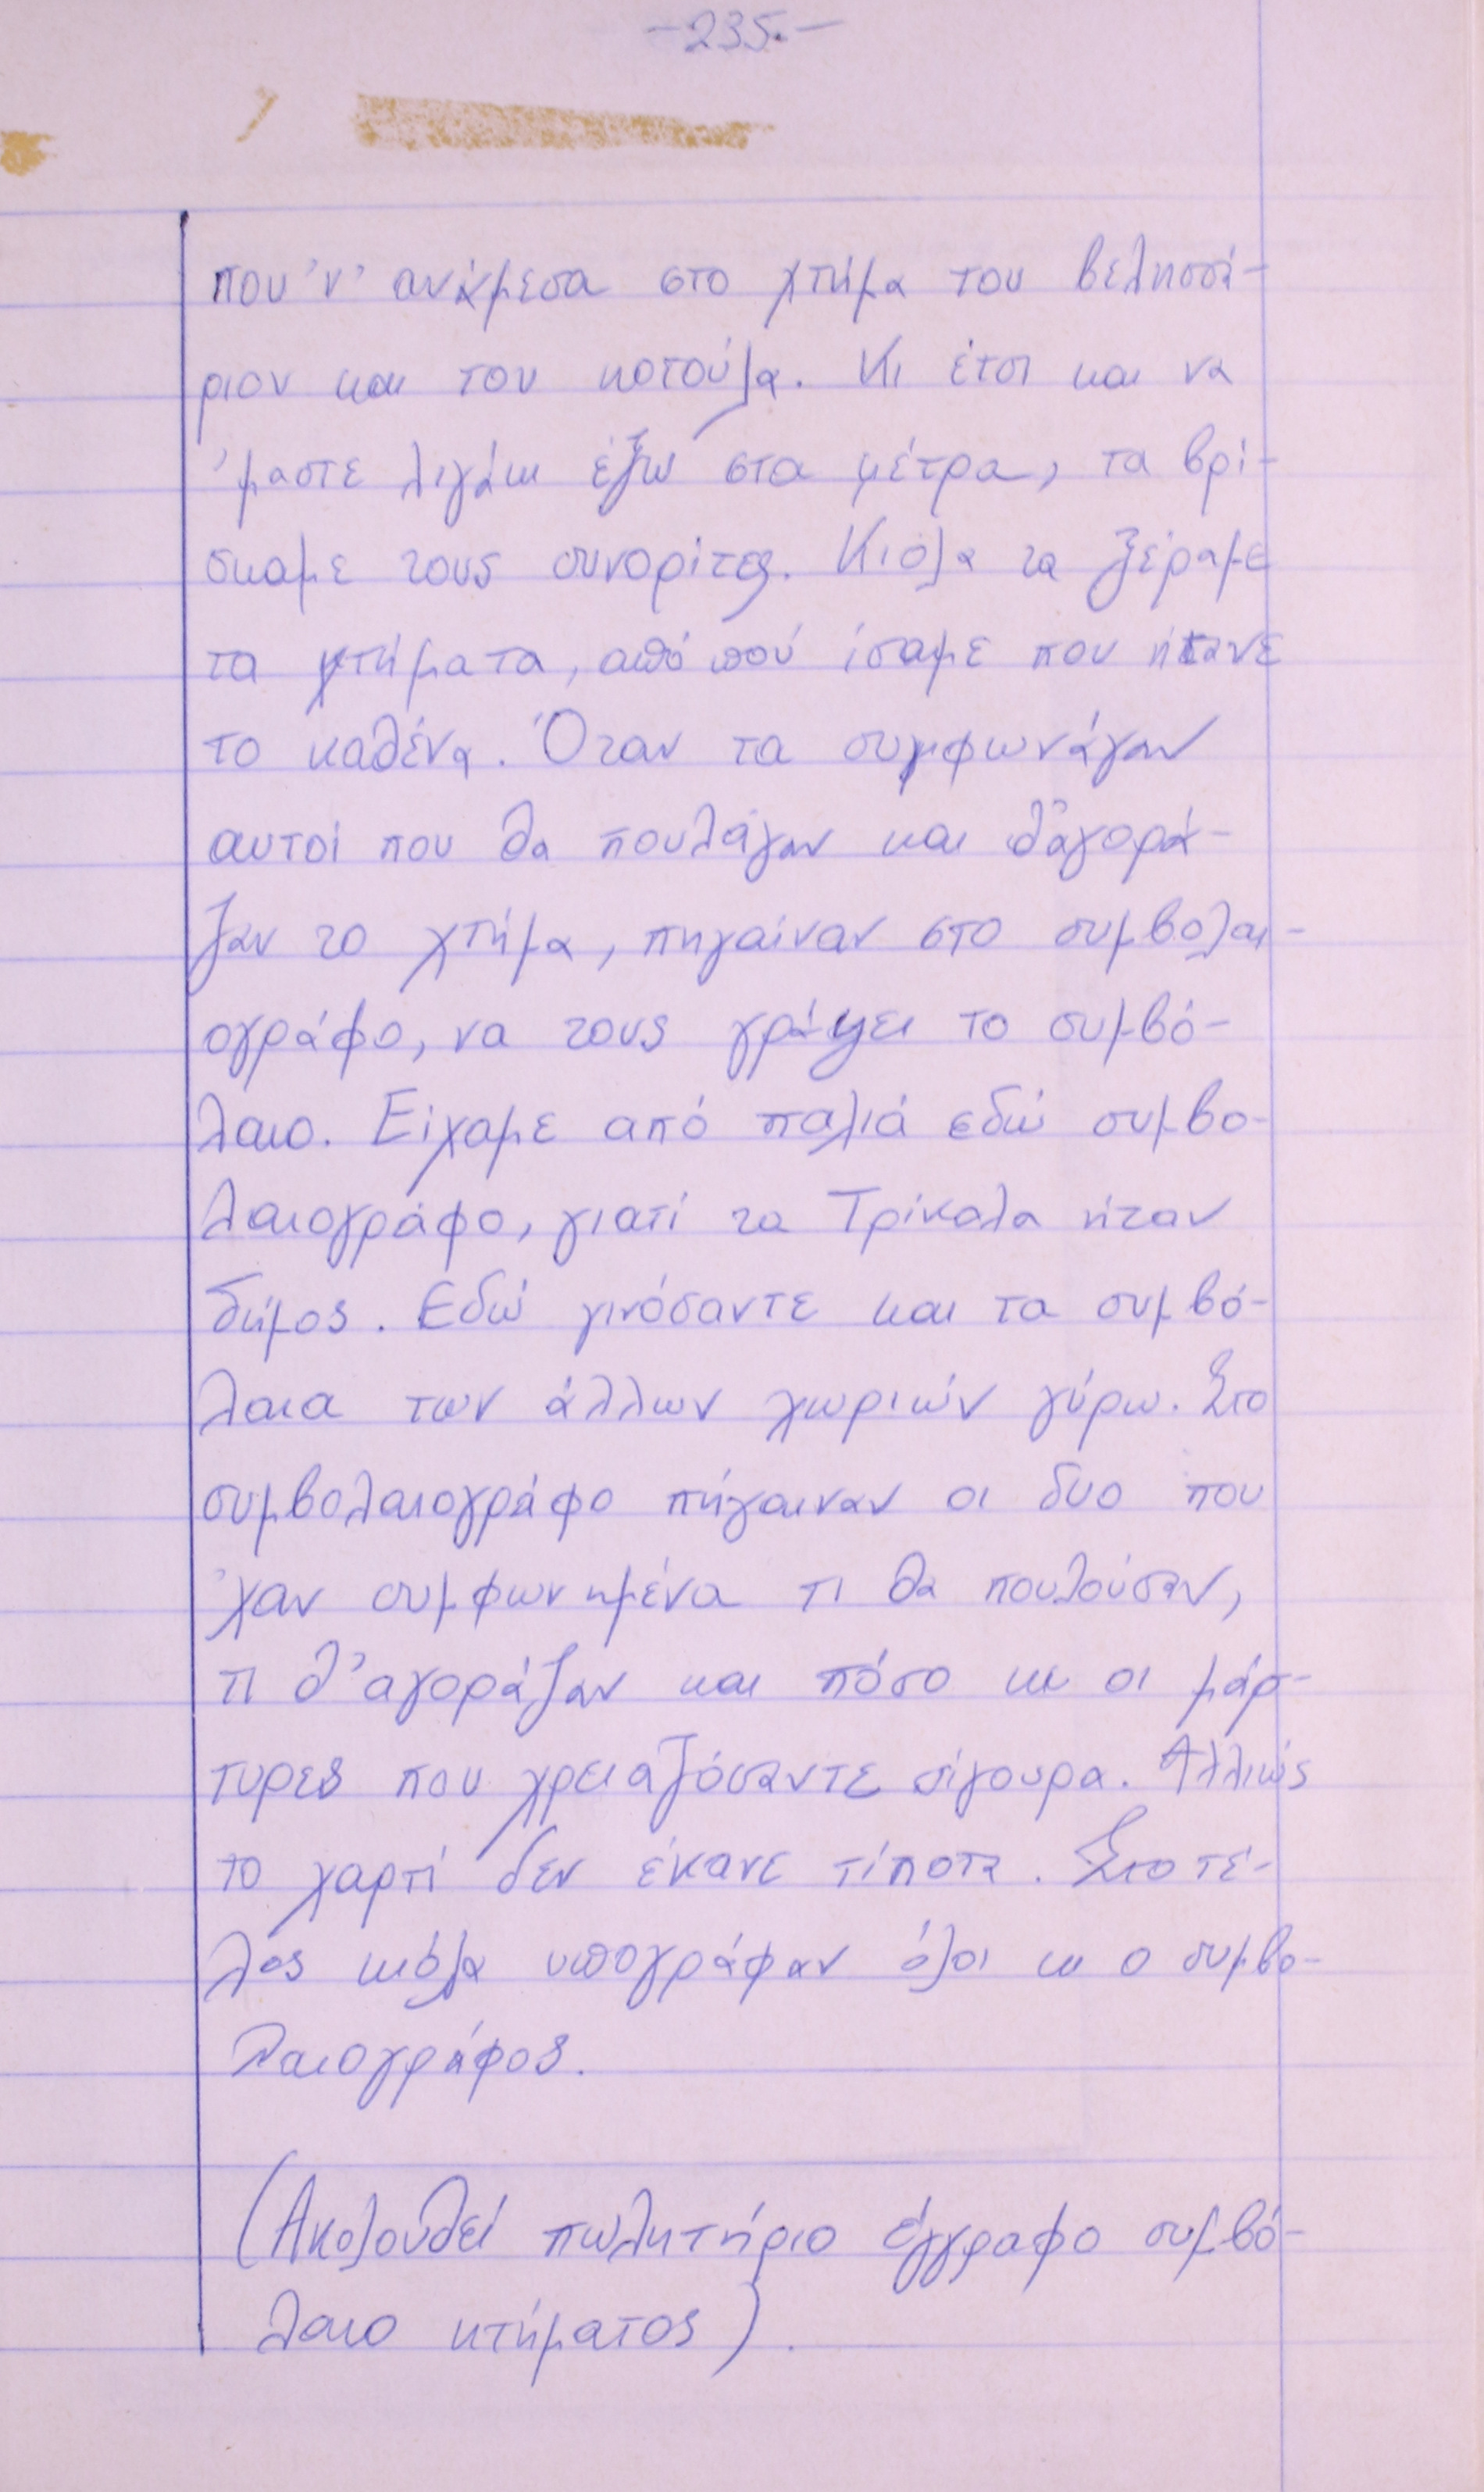 -235.-
που 'ν' ανάμεσα στο χτήμα του βελησσά-
ριου και του κοτούλα. Κι έτσι και να
'μαστε λιγάκι έξω στα μέτρα, τα βρί-
σκαμε τους συνορίτες. Κιόλα τα ξέραμε
τα χτήματα, από πού ίσαμε που ήτανε
το καθένα. Όταν τα συμφωνάγαν
αυτοί που θα πουλάγαν και θ'αγορά-
ζαν το χτήμα, πηγαίναν στο συμβολαι-
ογράφο, να τους γράψει το συμβό-
λαιο. Είχαμε από παλιά εδώ συμβο-
λαιογράφο, γιατί τα Τρίκαλα ήταν
δήμος. Εδώ γινόσαντε και τα συμβό-
λαια των άλλων χωριών γύρω. Στο
συμβολαιογράφο πήγαιναν οι δυο που
'χαν συμφωνημένα τι θα πουλούσαν,
τι θ'αγοράζαν και πόσο κι οι μάρ-
τυρες που χρειαζόσαντε σίγουρα. Αλλιώς
το χαρτί δεν έκανε τίποτα. Στο τέ-
λος κιόλα υπογράφαν όλοι κι ο συμβο-
λαιογράφος.
(Ακολουθεί πωλητήριο έγγραφο συμβό-
λαιο κτήματος).